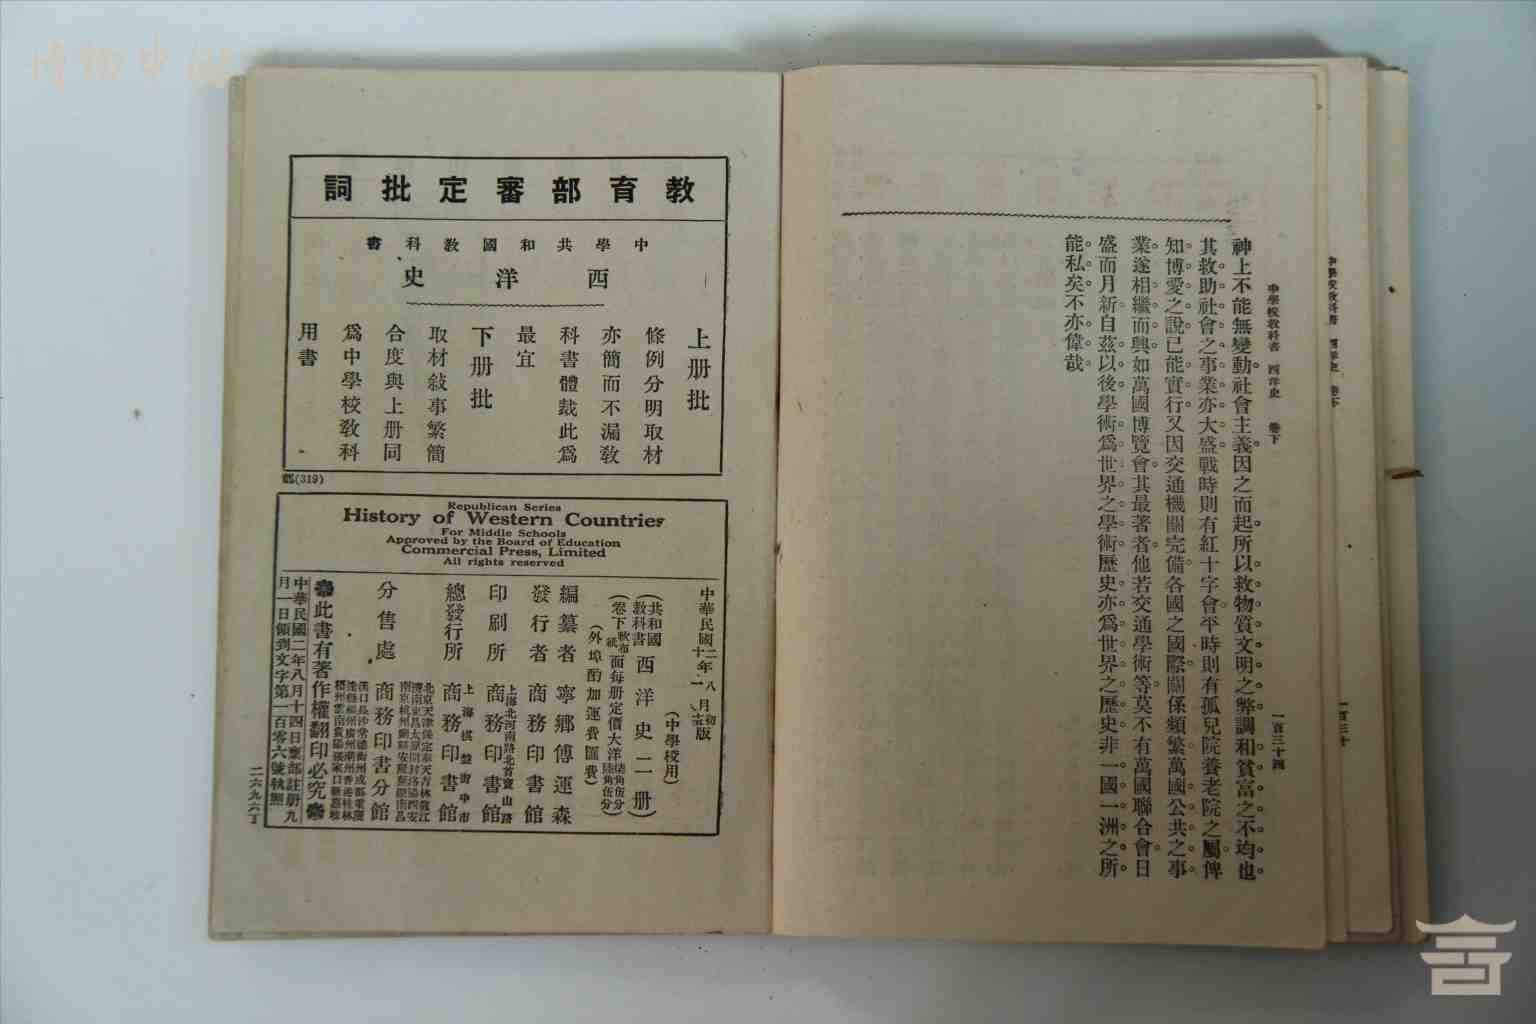 中學校教科書 西洋史 卷下
一百三十四
神上不能無變動社會主義因之而起。所以救物質文明之弊調和貧富之不均也。
其救助社會之事業亦大盛戰時則有紅十字會平時則有孤兒院養老院之屬俾
知博愛之說已能實行又因交通機關完備各國之國際關係頻繁萬國公共之事
業遂相繼而興如萬國博覽會其最著者他若交通學術等莫不有萬國聯合會日
盛而月新自茲以後學術爲世界之學術歷史亦爲世界之歷史非一國一洲之所
能私矣不亦偉哉
教育部審定批詞
中學共和國教科書
西洋史
上册批
條例分明取材
亦簡而不漏教
科書體裁此爲
最宜
下册批
取材敍事繁簡
合度與上册同
爲中學校教科
用書
(319)
Republican Series
History of Western Countries
For Middle Schools
Approved by the Board of Education
Commercial Press, Limited
All rights reserved
(中學校用)
(共和國教科書)西洋史二册
(外埠酌加運費匯費)
編纂者 寧鄉傅運森
發行者 商務印書館
印刷所 上海北河南路北首寶山路 商務印書館
總發行所 上海棋盤街中市 商務印書館
分售處 商務印書分館
此書有著作權翻印必究
中華民國二年八月十四日稟部註册九
月一日領到文字第一百零六號執照
二六九六丁